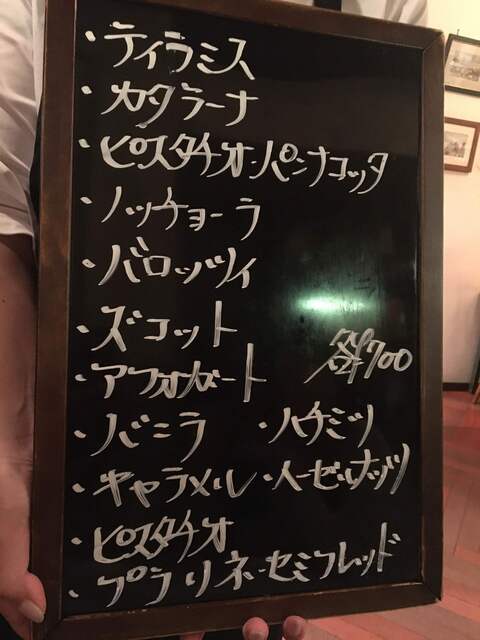 ・ティラミス
・カタラーナ
・ピスタチオ・パンナコッタ
・ノッチョーラ
・バロッツィ
・ズコット
・アフォガート 各¥700
・バニラ ・ハチミツ
・キャラメル ・ヘーゼルナッツ
・ピスタチオ
・プラリネ・セミフレッド